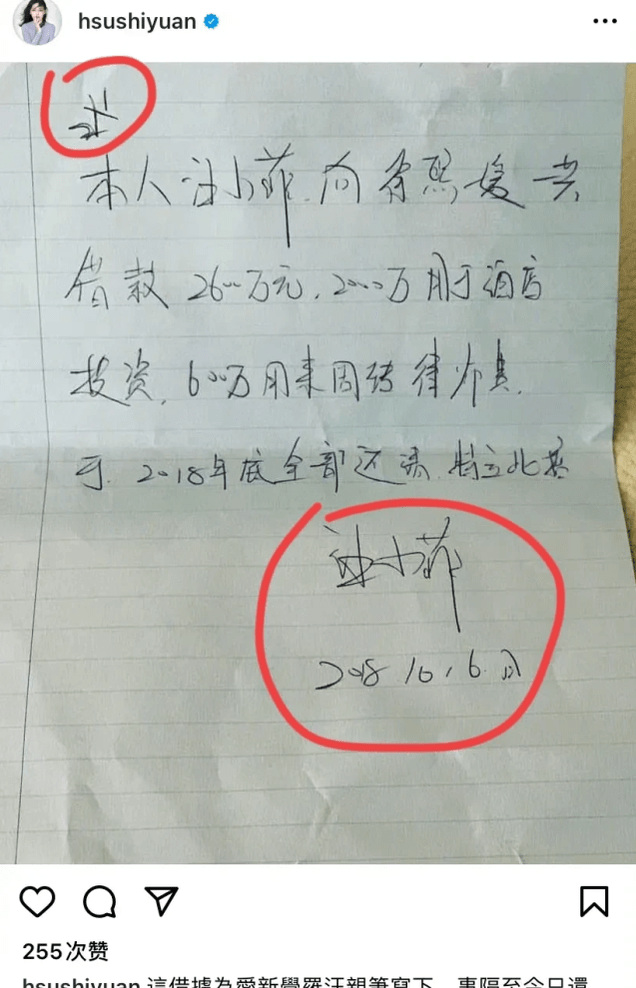 hsushiyuan
本人汪小菲.向徐熙媛共
借款 2600万元.2000万用于酒店
投资.600万用来周转律师费.
于.2018年底全部还清.特立此据
汪小菲
2018 10.6.
255次赞
hsushiyuan 這借據為愛新覺羅汪親筆寫下，事隔至今日還